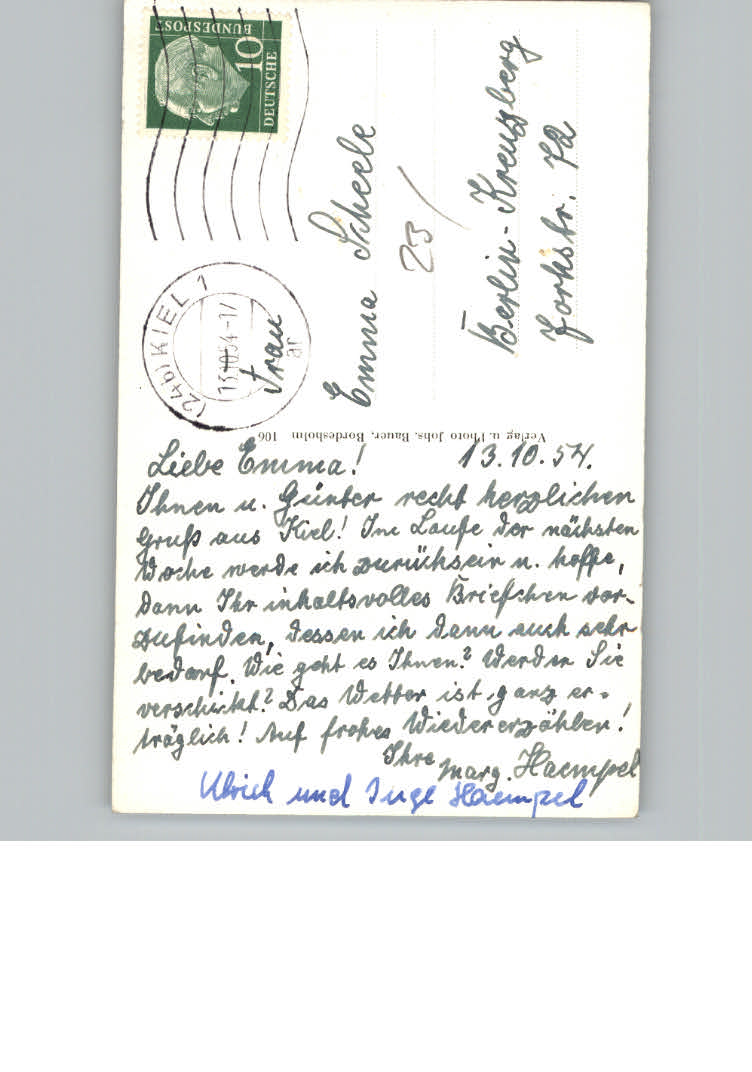 DEUTSCHE
BUNDESPOST
10
(24b) KIEL 1
13.10.54-17
ar
Frau
Emma Scheele
23/
Berlin-Kreuzberg
Yorkstr. 72
Verlag u. Photo Johs. Bauer, Bordesholm 106
Liebe Emma! 13.10.54.
Ihnen u. Günter recht herzlichen
Gruß aus Kiel! Im Laufe der nächsten
Woche werde ich zurücksein u. hoffe,
dann Ihr inhaltsvolles Briefchen vor-
zufinden, dessen ich dann auch sehr
bedarf. Wie geht es Ihnen? Werden Sie
verschickt? Das Wetter ist ganz er-
träglich! Auf frohes Wiedererzählen!
Ihre Marg. Haempel
Ulrich und Inge Haempel